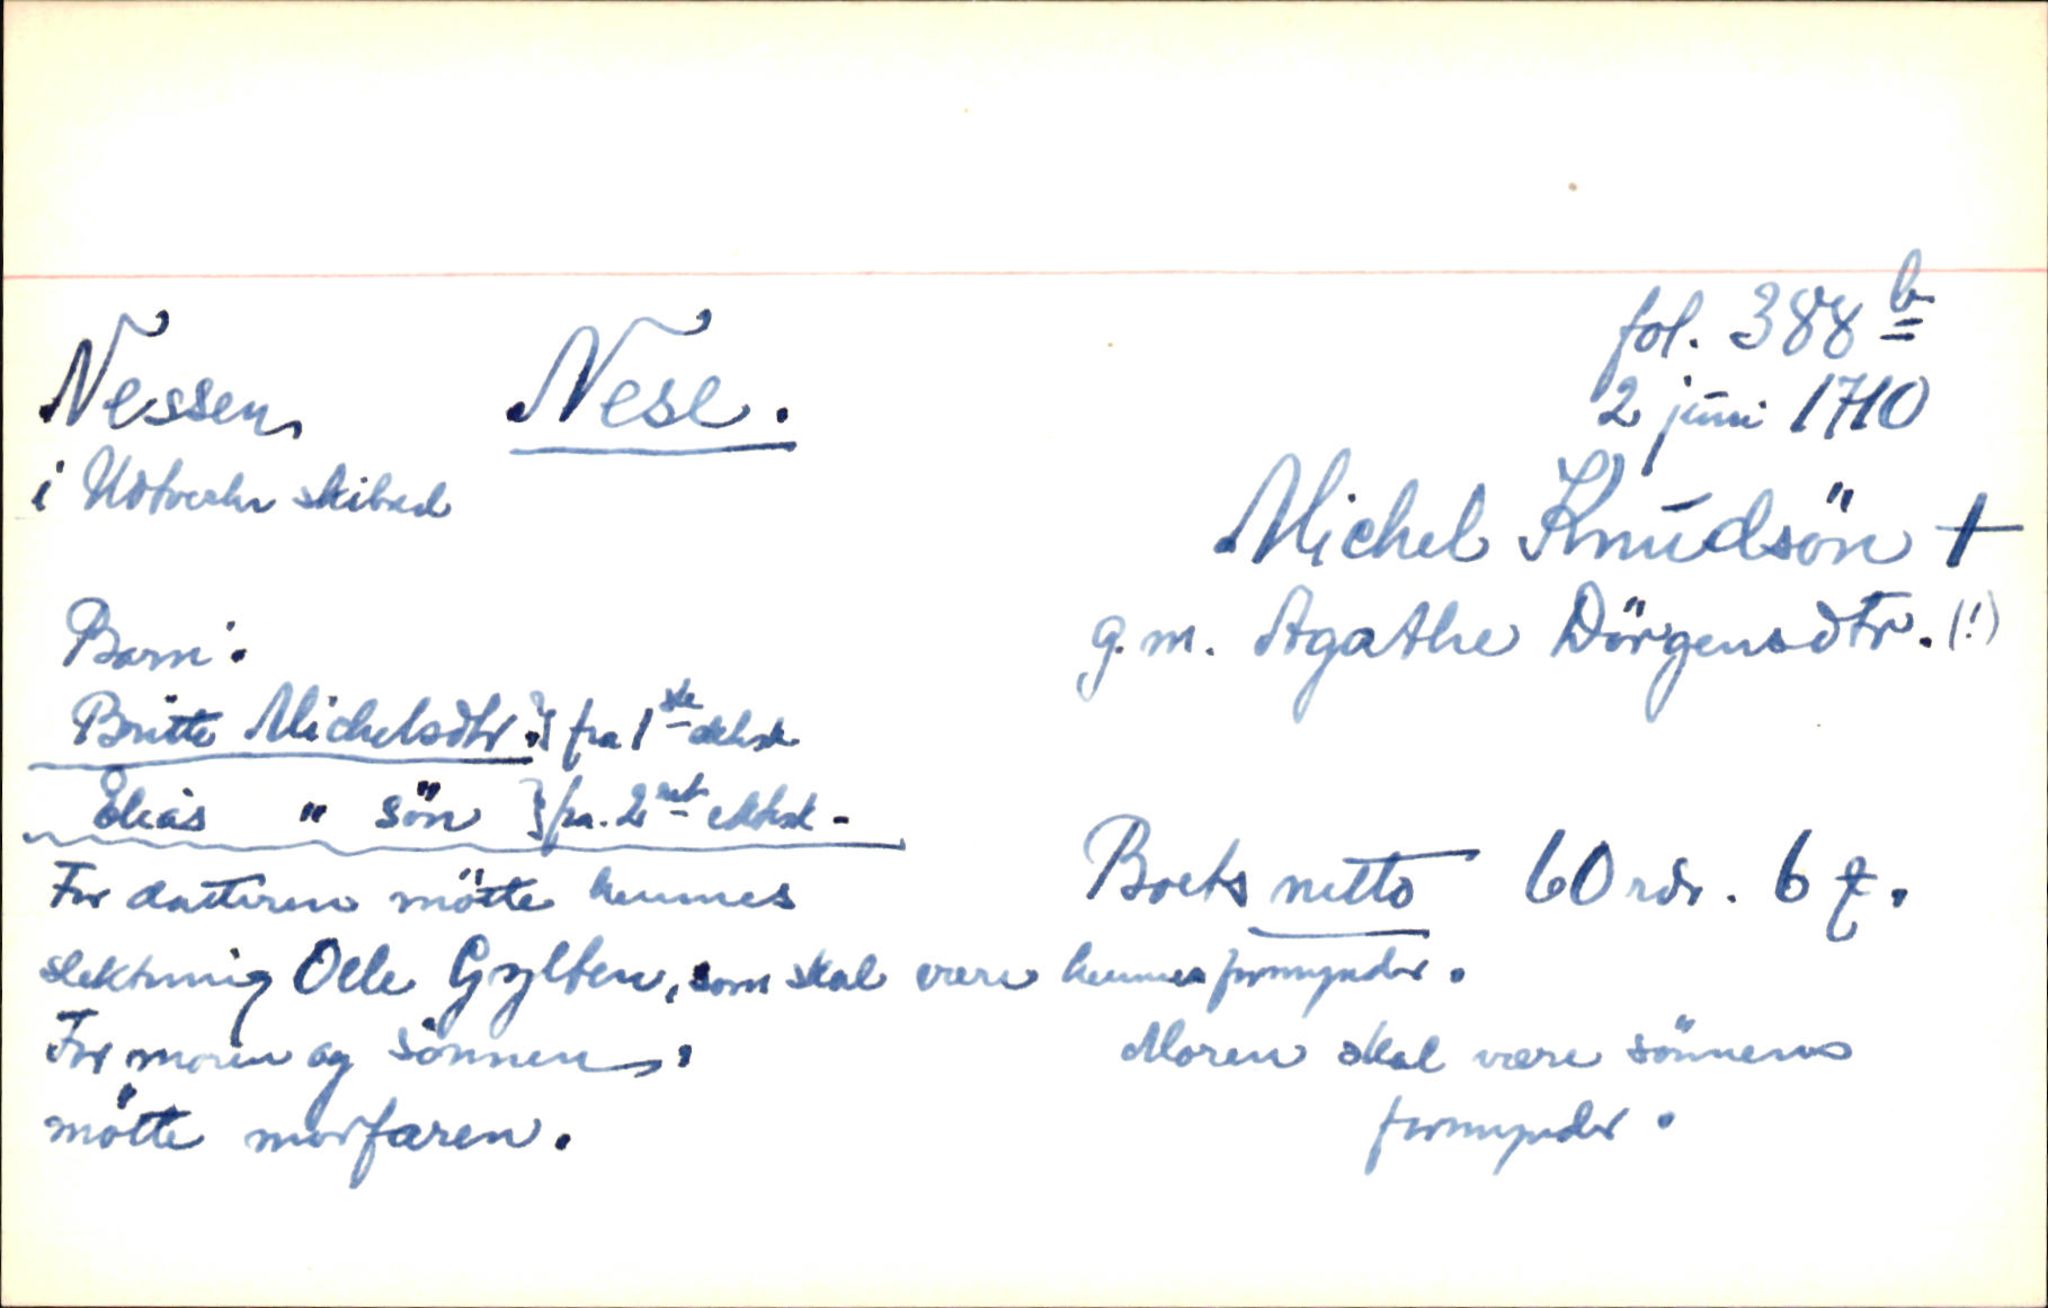 fol. 388 b
Nessen, Nese. 2 juni 1710
i Udtverhr skibred
Michel Knudsön +
g.m. Agathe Dörgensdtr. (!)
Barn:
Britte Michelsdtr. } fra 1ste ektsk.
Elias " sön } fra. 2net ektsk. -
For datteren mötte hennes
Boets netto 60 rdr. 6 ß.
slektning Olle Gylten, som skal være hennes formynder.
For moren og sönnen,
mötte morfaren.
Moren skal være sönnens
formynder.